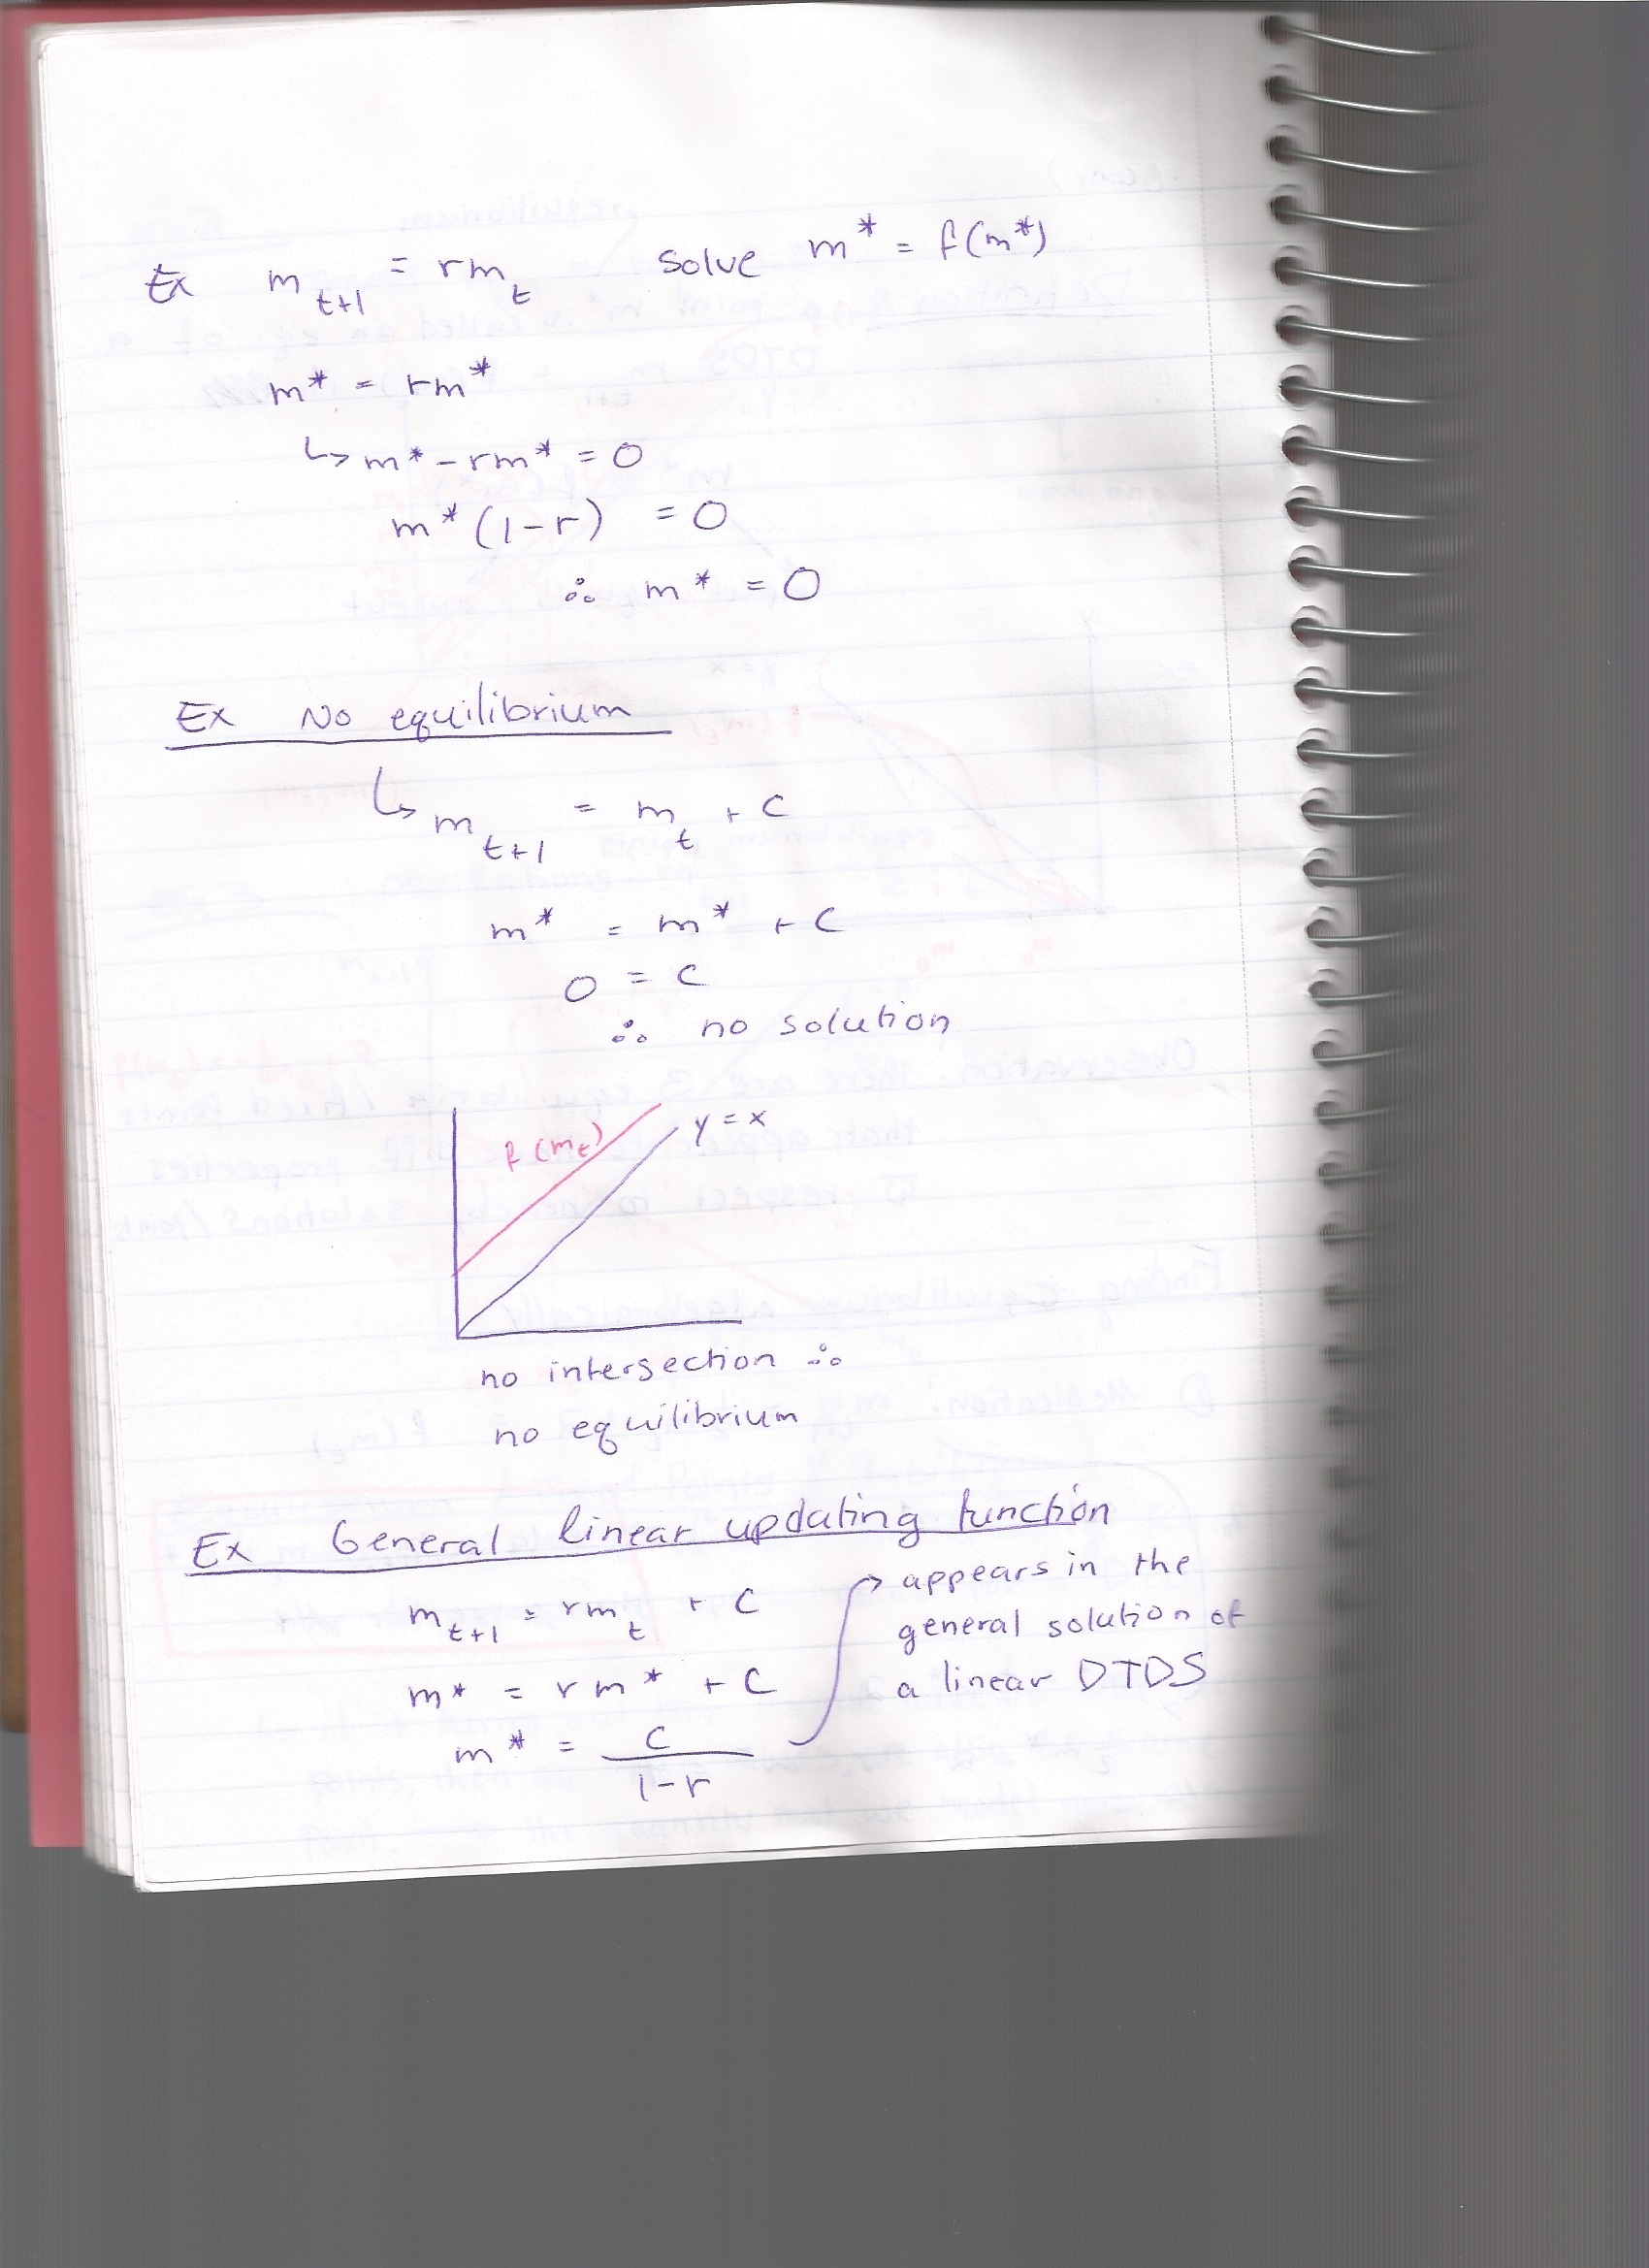 Ex m_{t+1} = rm_t solve m* = f(m*)
m* = rm*
↳ m* - rm* = 0
m* (1-r) = 0
∴ m* = 0
Ex No equilibrium
↳ m_{t+1} = m_t + C
m* = m* + C
0 = C
∴ no solution
f(m_t) y = x
no intersection ∴
no equilibrium
Ex General linear updating function
m_{t+1} = rm_t + C
m* = rm* + C
m* = C / 1-r
→ appears in the
general solution of
a linear DTDS